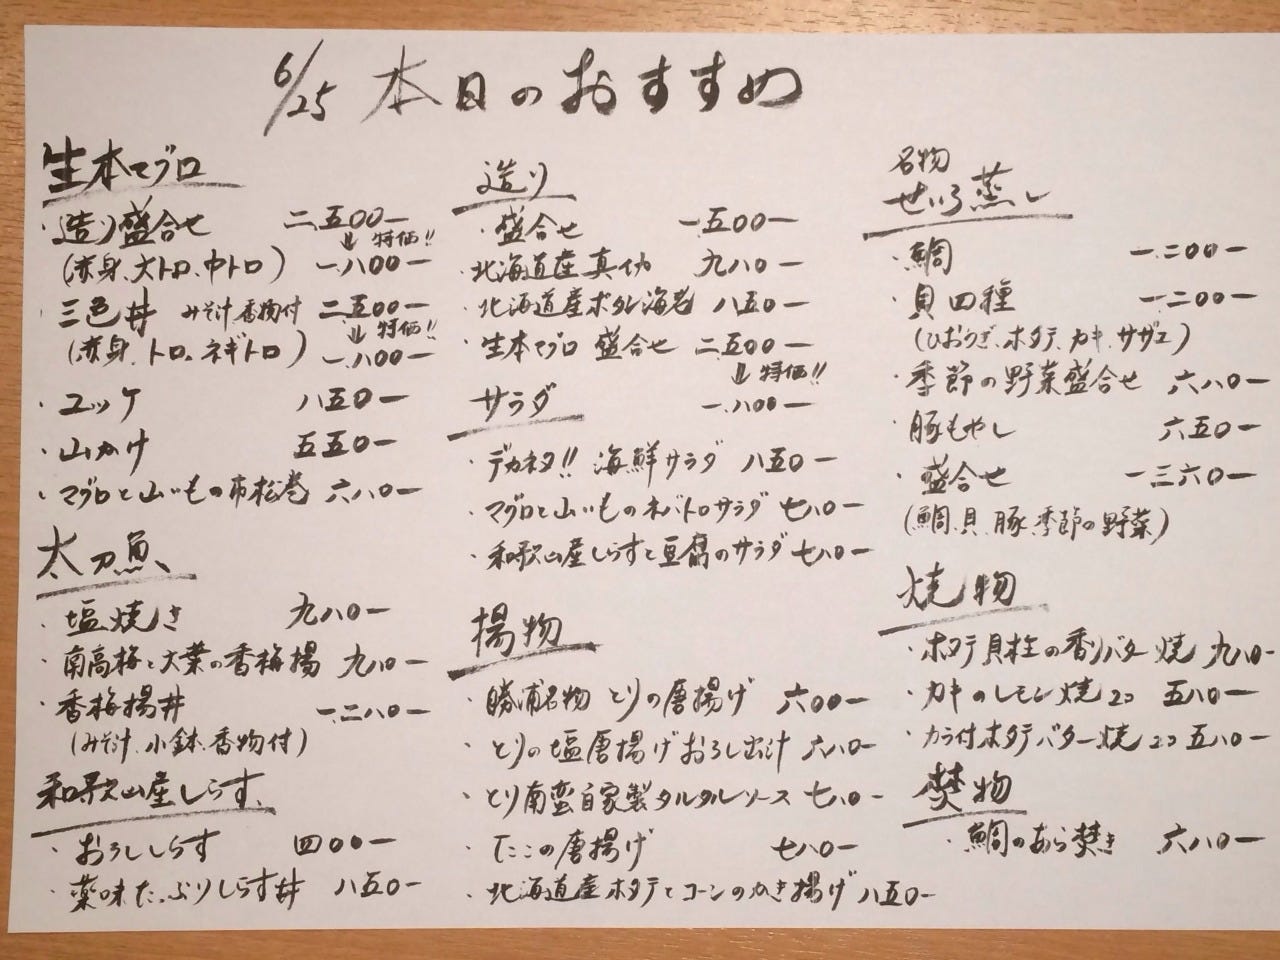 6/25 本日のおすすめ
生本マグロ
・造り盛合せ 二五00ー
↓特価!!
(赤身、大トロ、中トロ) 一八00ー
・三色丼 みそ汁 香物付 二五00ー
↓特価!!
(赤身、トロ、ネギトロ) 一八00ー
・ユッケ 八五0ー
・山かけ 五五0ー
・マグロと山いもの市松巻 六八0ー
太刀魚
・塩焼き 九八0ー
・南高梅と大葉の香梅揚 九八0ー
・香梅揚丼 一二八0ー
(みそ汁、小鉢、香物付)
和歌山産しらす
・おろししらす 四00ー
・薬味たっぷりしらす丼 八五0ー
造り
・盛合せ 一五00ー
・北海道産真イカ 九八0ー
・北海道産ボタン海老 八五0ー
・生本マグロ 盛合せ 二五00ー
↓特価!!
一八00ー
サラダ
・デカネタ!! 海鮮サラダ 八五0ー
・マグロと山いものネバトロサラダ 七八0ー
・和歌山産しらすと豆腐のサラダ 七八0ー
揚物
・勝浦名物 とりの唐揚げ 六00ー
・とりの塩唐揚げおろし出汁 六八0ー
・とり南蛮自家製タルタルソース 七八0ー
・たこの唐揚げ 七八0ー
・北海道産ホタテとコーンのかき揚げ 八五0ー
名物
せいろ蒸し
・鯛 一二00ー
・貝四種 一二00ー
(ひおうぎ、ホタテ、カキ、サザエ)
・季節の野菜盛合せ 六八0ー
・豚もやし 六五0ー
・盛合せ 一三六0ー
(鯛、貝、豚、季節の野菜)
焼物
・ホタテ貝柱の香りバター焼 九八0ー
・カキのレモン焼 2コ 五八0ー
・カラ付ホタテバター焼 2コ 五八0ー
焚物
・鯛のあら焚き 六八0ー